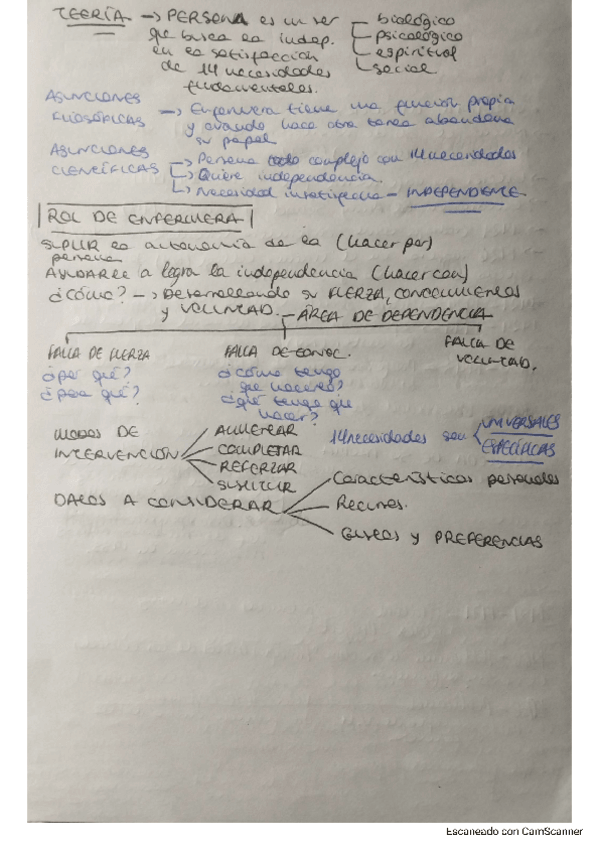 TEORÍA → PERSONA es un ser — biológico
que busca la indep. — psicológico
en la satisfacción — espiritual
de 14 necesidades — social
fundamentales.
ASUNCIONES FILOSÓFICAS → Enfermera tiene una función propia
y cuando hace otra tarea abandona
su papel
ASUNCIONES CIENTÍFICAS → Persona todo complejo con 14 necesidades
→ Quiere independencia.
→ Necesidad insatisfecha - INDEPENDIENTE
ROL DE ENFERMERA
SUPLIR la autonomía de la (hacer por)
persona
AYUDARLE a lograr la independencia (hacer con)
¿Cómo? → Desarrollando su FUERZA, CONOCIMIENTOS
y VOLUNTAD. — ÁREA DE DEPENDENCIA
FALLA DE FUERZA
¿por qué?
¿para qué?
FALLA DE CONOC.
¿cómo tengo
que hacerlo?
¿qué tengo que
hacer?
FALLA DE
VOLUNTAD.
MODOS DE INTERVENCIÓN
AUMENTAR
COMPLETAR
REFORZAR
SUSTITUIR
14 necesidades son
UNIVERSALES
ESPECÍFICAS
DATOS A CONSIDERAR
Características personales
Recursos.
GUSTOS Y PREFERENCIAS
Escaneado con CamScanner